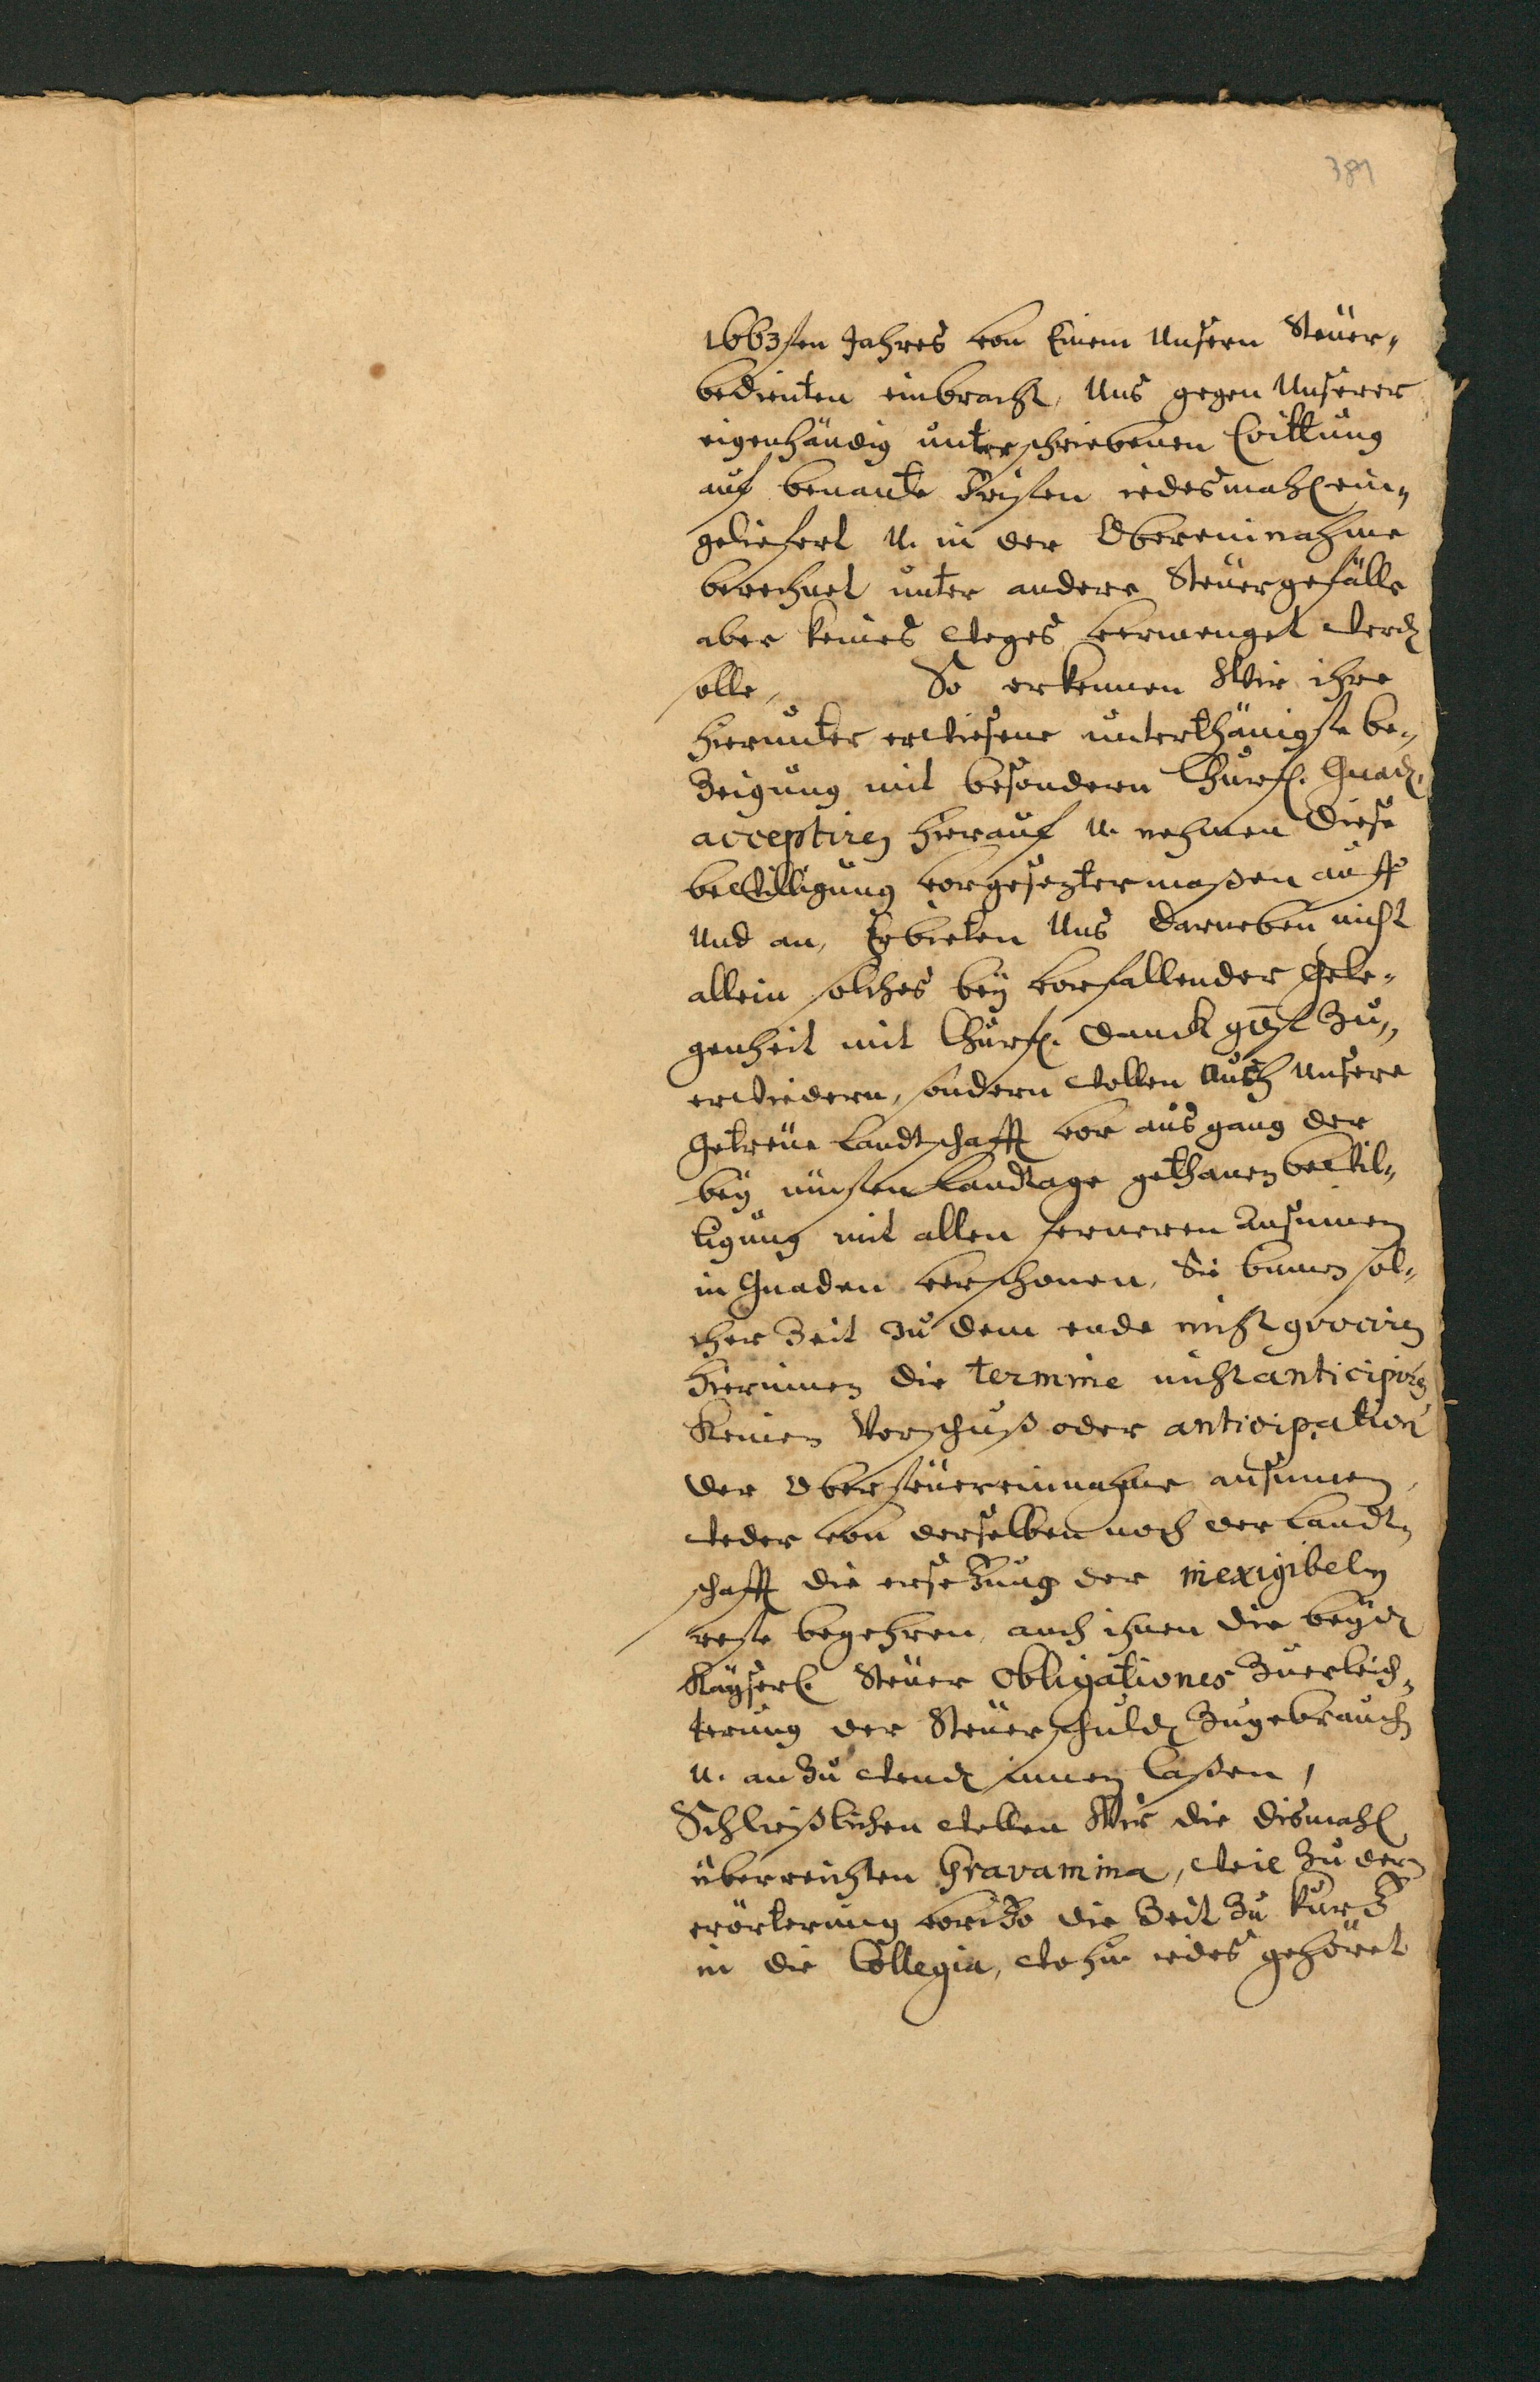 389
1663sten Jahres von Einem Unsern Steüer-
bedienten einbracht, Uns gegen Unserer
eigenhändig unterschriebenen Qvittung
auf benante Fristen iedesmahl ein-
geliefert u. in der Obereinnahme
berechnet unter andere Steüergefälle
aber keines weges vermenget werden
solle, So erkennen Wir ihre
hierunter erwiesene unterthänigste be-
zeigung mit besondern Churfl. Gnaden,
acceptiren hierauf u. nehmen diese
bewilligung vorgesezter maßen auff
und an, Erbieten Uns darneben nicht
allein solches bey vorfallender Gele-
genheit mit Churfl. Danck gdst zu-
erwiedern, sondern wollen auch Unsere
Getreüe Landtschafft vor ausgang der
bey Landtage gethanen bewil-
ligung mit allen ferneren Ansinnen
in Gnaden verschonen, Sie binnen sol-
cher Zeit zu dem ende nicht
hierinnen die termine nicht anticipiren
Keinen Vorschuß oder anticipation
der Obersteüereinnahme ansinnen,
weder von derselben noch der Landt-
schafft die ersetzung der inexigibeln
reste begehren, auch ihnen die beyden
Kayserl. Steüer Obligationes zuerleich-
terung der Steüerschulden zugebrauchen
u. anzuwenden innen laßen,
Schließlichen wollen Wir die dismahl
überreichten Gravamina, weil zu deren
erörterung vorizo die Zeit zu kurz
in die Collegia, wohin iedes gehöret